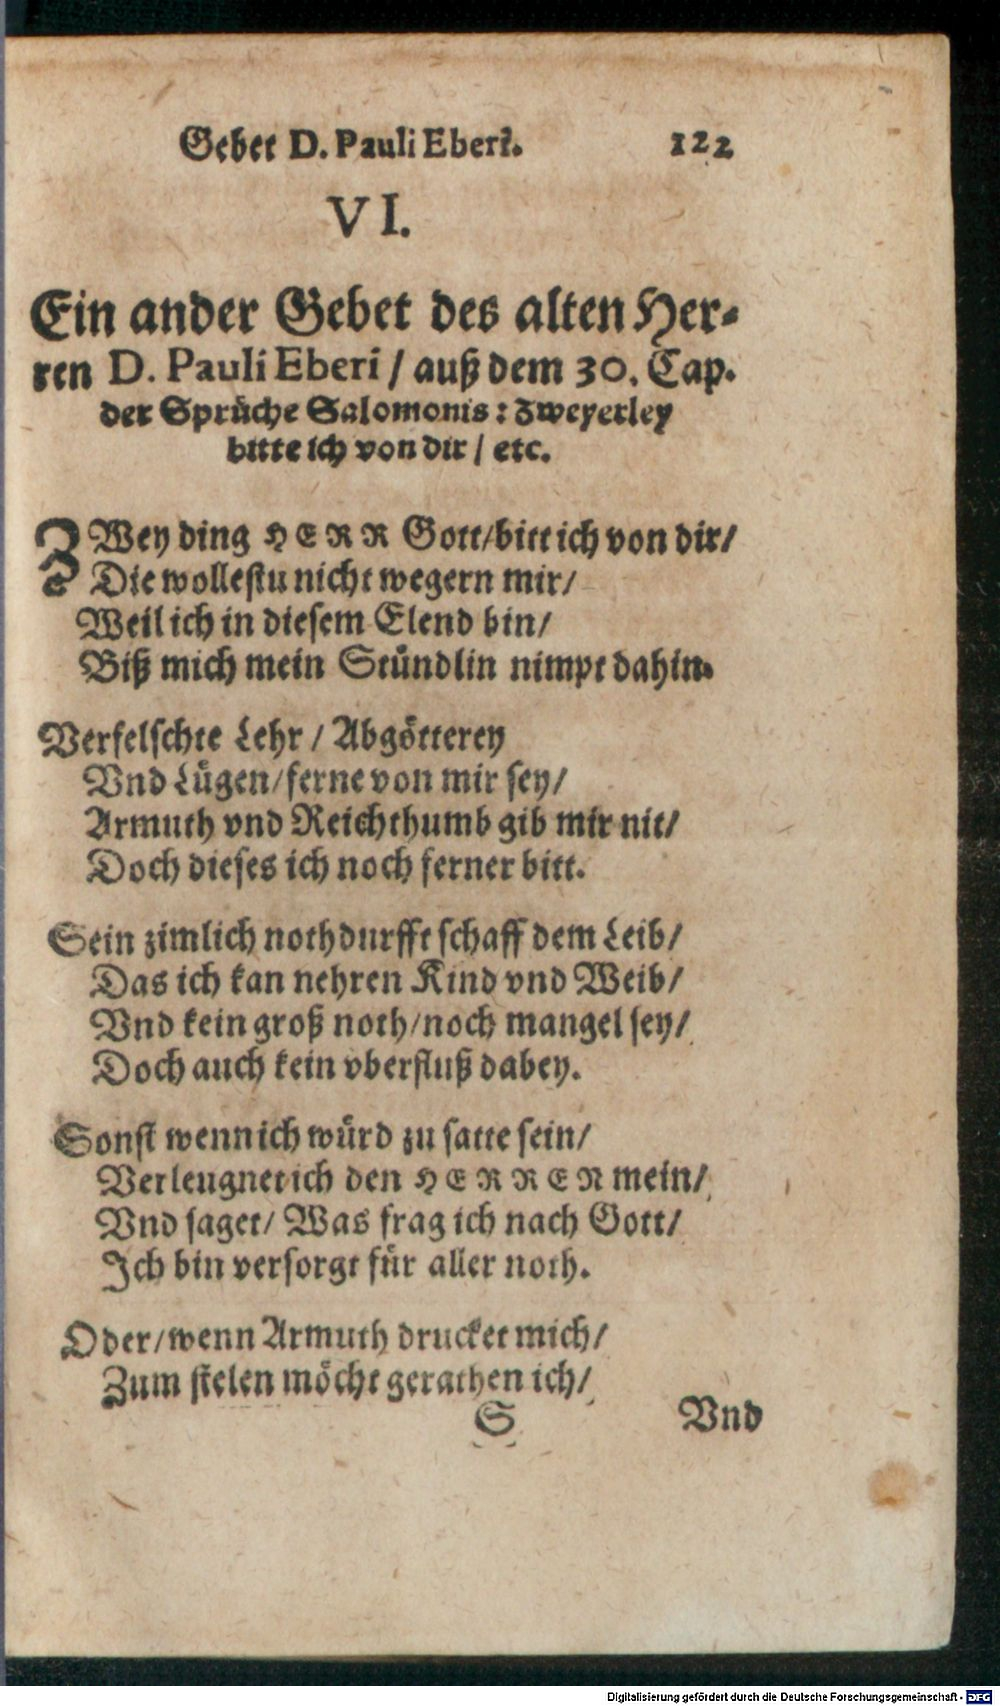 Gebet D. Pauli Eberi. 122
VI.
Ein ander Gebet des alten Her-
ren D. Pauli Eberi / auß dem 30. Cap.
der Sprüche Salomonis: Zweyerley
bitte ich von dir / etc.
ZWey ding HERR Gott/bitt ich von dir/
Die wollestu nicht wegern mir/
Weil ich in diesem Elend bin/
Biß mich mein Stündlin nimpt dahin.
Verfelschte Lehr / Abgötterey
Vnd Lügen/ferne von mir sey/
Armuth vnd Reichthumb gib mir nit/
Doch dieses ich noch ferner bitt.
Sein zimlich nothdurfft schaff dem Leib/
Das ich kan nehren Kind vnd Weib/
Vnd kein groß noth/noch mangel sey/
Doch auch kein vberfluß dabey.
Sonst wenn ich würd zu satte sein/
Verleugnet ich den HERREN mein/
Vnd saget/ Was frag ich nach Gott/
Ich bin versorgt für aller noth.
Oder/wenn Armuth drucket mich/
Zum stelen möcht gerathen ich/
S Vnd
Digitalisierung gefördert durch die Deutsche Forschungsgemeinschaft - DFG